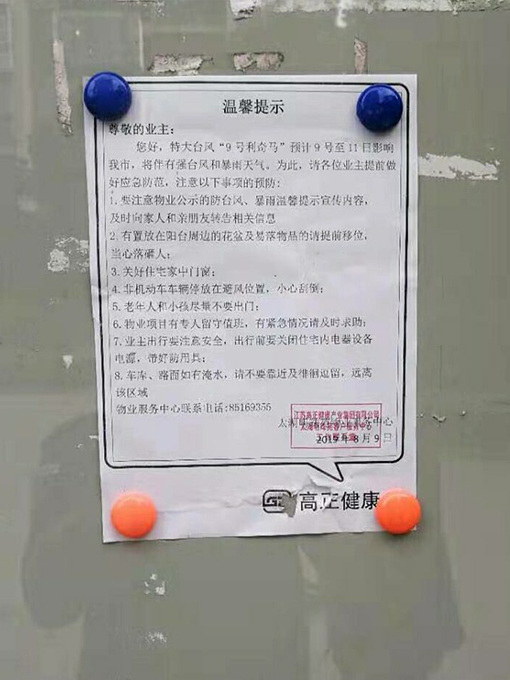 温馨提示
尊敬的业主：
您好，特大台风“9号利奇马”预计9号至11日影响
我市，将伴有强台风和暴雨天气。为此，请各位业主提前做
好应急防范，注意以下事项的预防：
1.要注意物业公示的防台风、暴雨温馨提示宣传内容，
及时向家人和亲朋友转告相关信息
2.有置放在阳台周边的花盆及易落物品的请提前移位，
当心落砸人；
3.关好住宅家中门窗；
4.非机动车车辆停放在避风位置，小心刮倒；
5.老年人和小孩尽量不要出门；
6.物业项目有专人留守值班，有紧急情况请及时求助；
7.业主出行要注意安全，出行前要关闭住宅内电器设备
电源，带好防用具；
8.车库、路面如有淹水，请不要靠近及徘徊逗留，远离
该区域
物业服务中心联系电话:85169355
江苏高正健康产业集团有限公司
务中心
2019年8月9日
高正健康